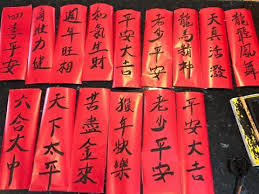 龍飛鳳舞
天真活潑
龍馬精神
老少平安
平安大吉
和氣生財
週年旺相
身壯力健
四季平安
平安大吉
老少平安
猴年快樂
苦盡金來
天下太平
六合大中